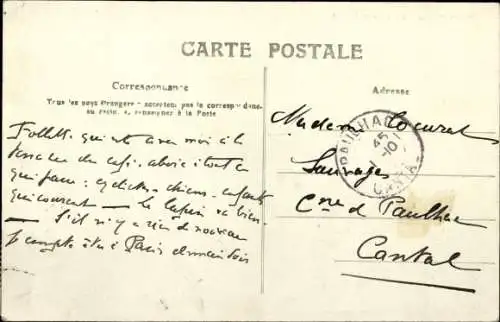 CARTE POSTALE
Correspondance
Tous les pays étrangers n'acceptent pas la correspondance
au recto, se renseigner à la Poste
Adresse
Follette qui est avec moi à la
terrasse du café, aboie à tout ce
qui passe : cyclistes, chiens, enfants
qui courent — le lapin va bien —
S'il n'y a rien de nouveau
je compte être à Paris demain soir
Madame Locuret
Sauvages
Cne de Paulhac
Cantal
PAULHAC
45
-10
CANTAL